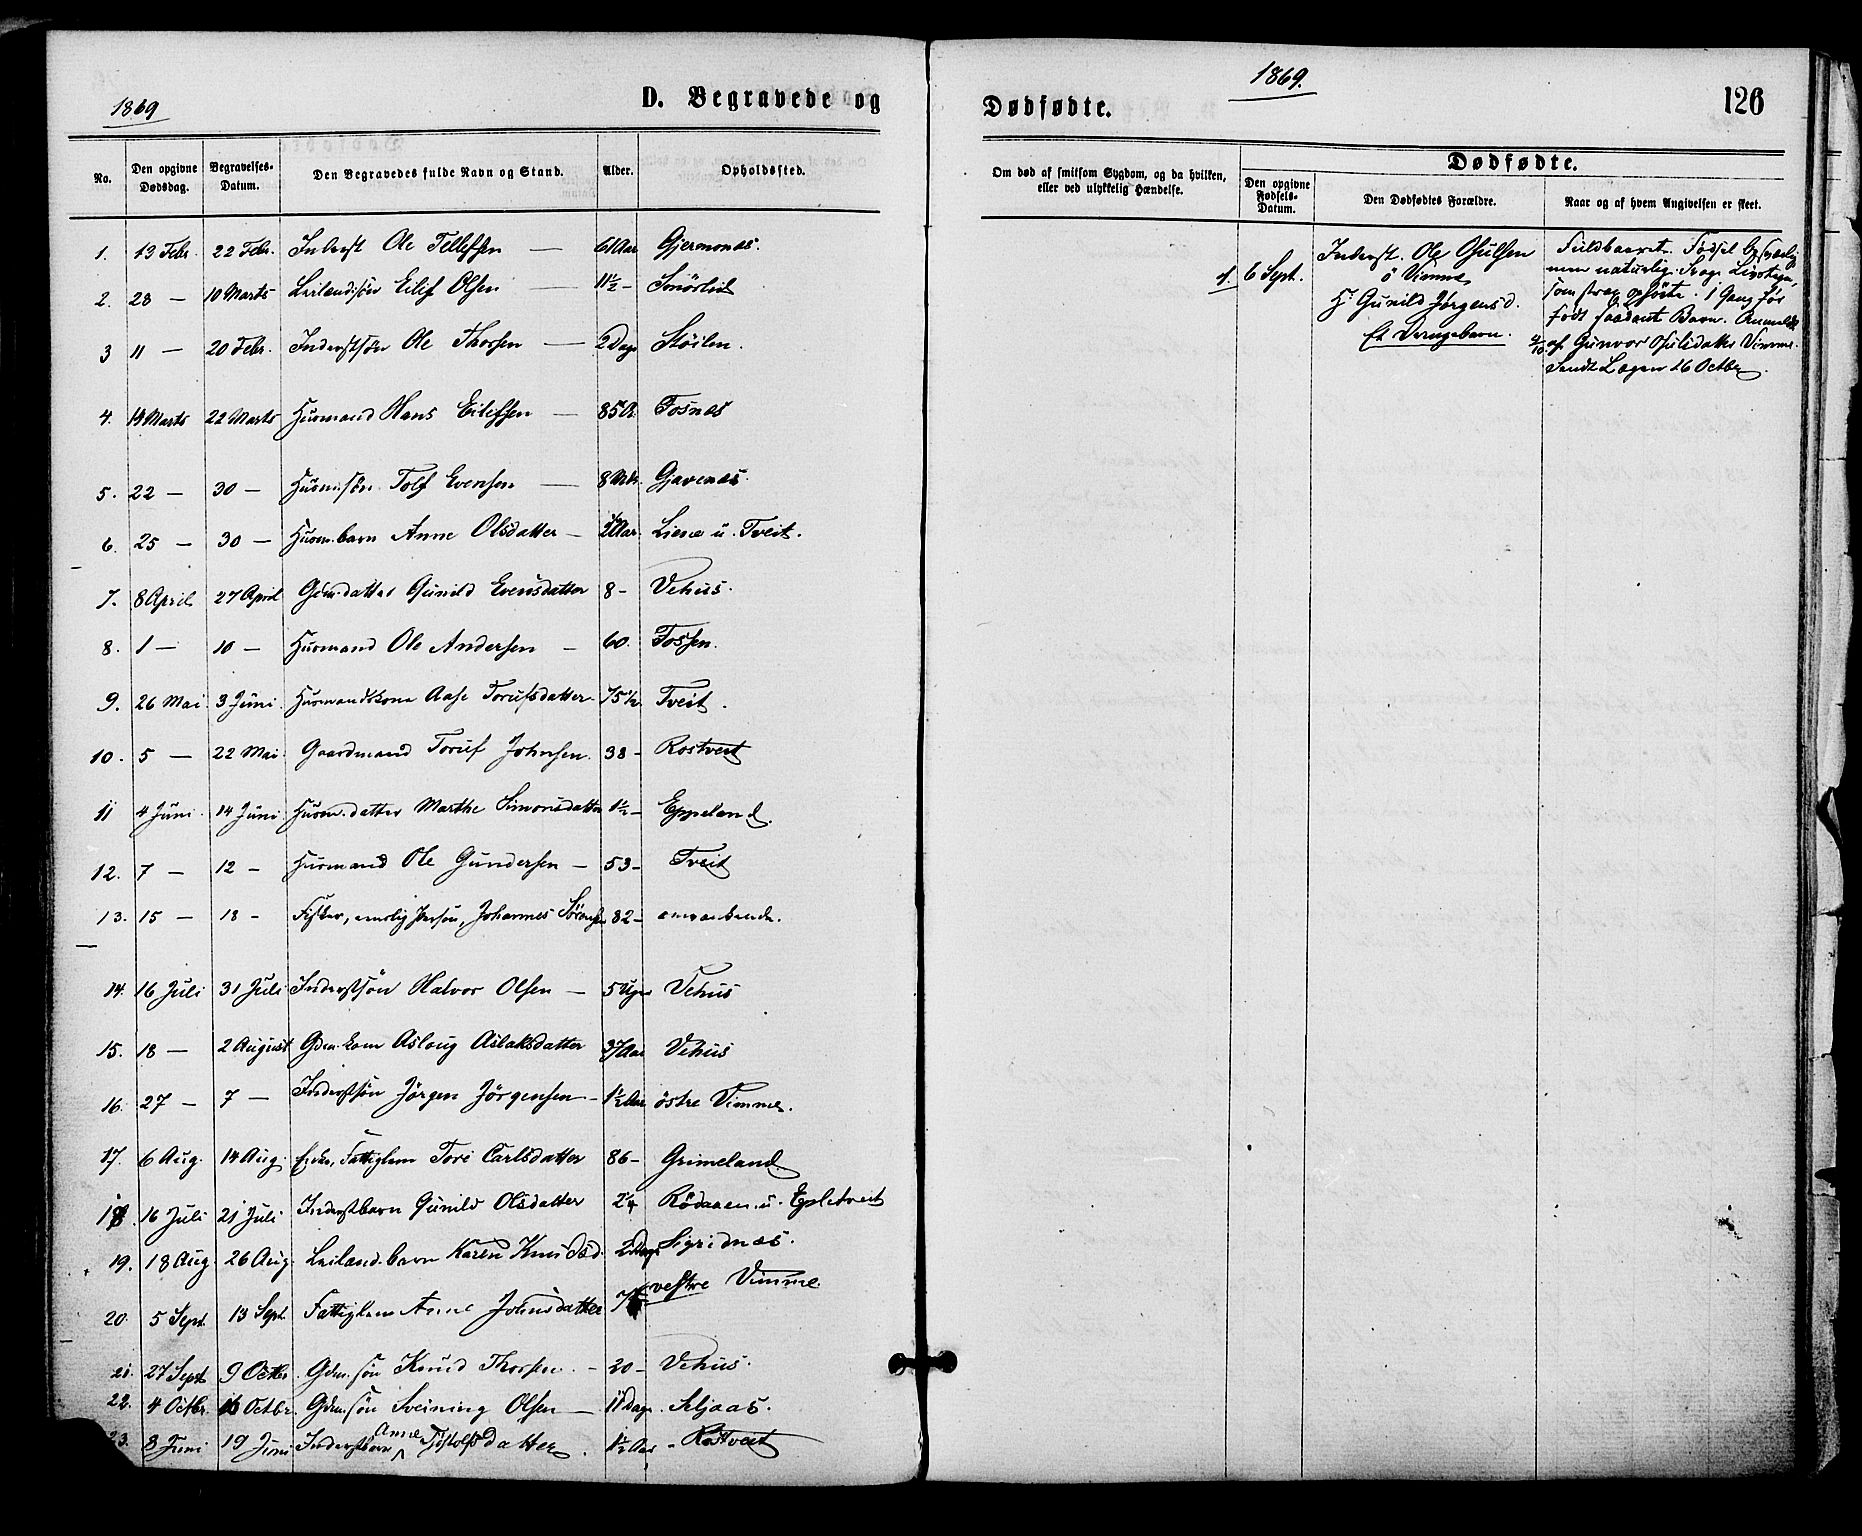 1869
D. Begravede og
No. Den opgivne Dødsdag. Begravelses-Datum. Den Begravedes fulde Navn og Stand. Alder. Opholdssted.
1. 13 Febr. 22 Febr. Inderst Ole Tellefsen — 61 Aar Gjermones.
2. 28 — 10 Marts Leilændsøn Eilef Olsen — 11½ - Smørlid
3 11 — 20 Febr. Inderstsøn Ole Thorsen — 2 Dage Støilen.
4. 14 Marts 22 Marts Husmand Hans Eilefsen — 85 A. Fosnes
5. 22 — 30 — Husm.søn Tolf Evensen — 8 Mdr. Gjavenes.
6. 25 — 30 — Husm.barn Anne Olsdatter — Aar. Liene u. Tveit.
7. 8 April 27 April Gdm.datter Gunild Evensdatter 8 - Vehus.
8. 1 — 10 — Husmand Ole Andersen — 60. Fossen.
9. 26 Mai 3 Juni Husmandskone Aase Torufsdatter 75½ Tveit.
10. 5 — 22 Mai. Gaardmand Toruf Johnsen. 38 - Rostveit
11 4 Juni. 14 Juni Husm.datter Marthe Simonsdatter 1½ - Eppeland.
12. 7 — 12 — Husmand Ole Gundersen — 53 - Tveit
13. 15 — 18 - Johannes 82 - omvankende.
14. 16 Juli 31 Juli Inderstsøn Halvor Olsen — 5 Uger Vehus
15. 18 — 2 August Gdm.kone Asloug Aslaksdatter 37 Aar Vehus
16. 27 — 7 — Inderstsøn Jørgen Jørgensen - 1½ Aar østre Vimme.
17. 6 Aug. 14 Aug. Enke, Fattiglem Tore Carlsdatter 86 - Grimeland
18. 16 Juli 21 Juli Inderstbarn Gunild Olsdatter Rødaaen u. Epletveit
19. 18 Aug 26 Aug. Leilænd.barn Karen Knudsd. 2 Dage Sigridnæs.
20. 5 Sept. 13 Sept. Fattiglem Anne Johnsdatter vestre Vimme.
21. 27 Sept 9 Octbr. Gdm.søn Knud Thorsen. - 20 - Vehus.
22. 4 Octbr. 16 Octbr. Gdm.søn Sveinung Olsen — 11 Dage. Seljaas.
23. 8 Juni 19 Juni Inderstbarn Anne Tjstolfsdatter. 1½ Aar - Rostveit
1869.
Dødfødte. 126
Om død af smitsom Sygdom, og da hvilken, eller ved ulykkelig Hændelse.
Dødfødte.
Den opgivne Fødsels-Datum. Den Dødfødtes Forældre. Naar og af hvem Angivelsen er skeet.
1. 6 Sept. Inderst. Ole Osulsen
ø Vimme
H. Gunild Jørgensd.
Et Drengebarn.
Fuldbaaret. Fødsel besværlig
men naturlig. Svage Livstegn,
som strax ophørte. 1 Gang før
født saadant Barn. Anmeldt
4/10 af Gunvor Osulsdatter Vimme.
Sendt Lægen 26 Octbr.